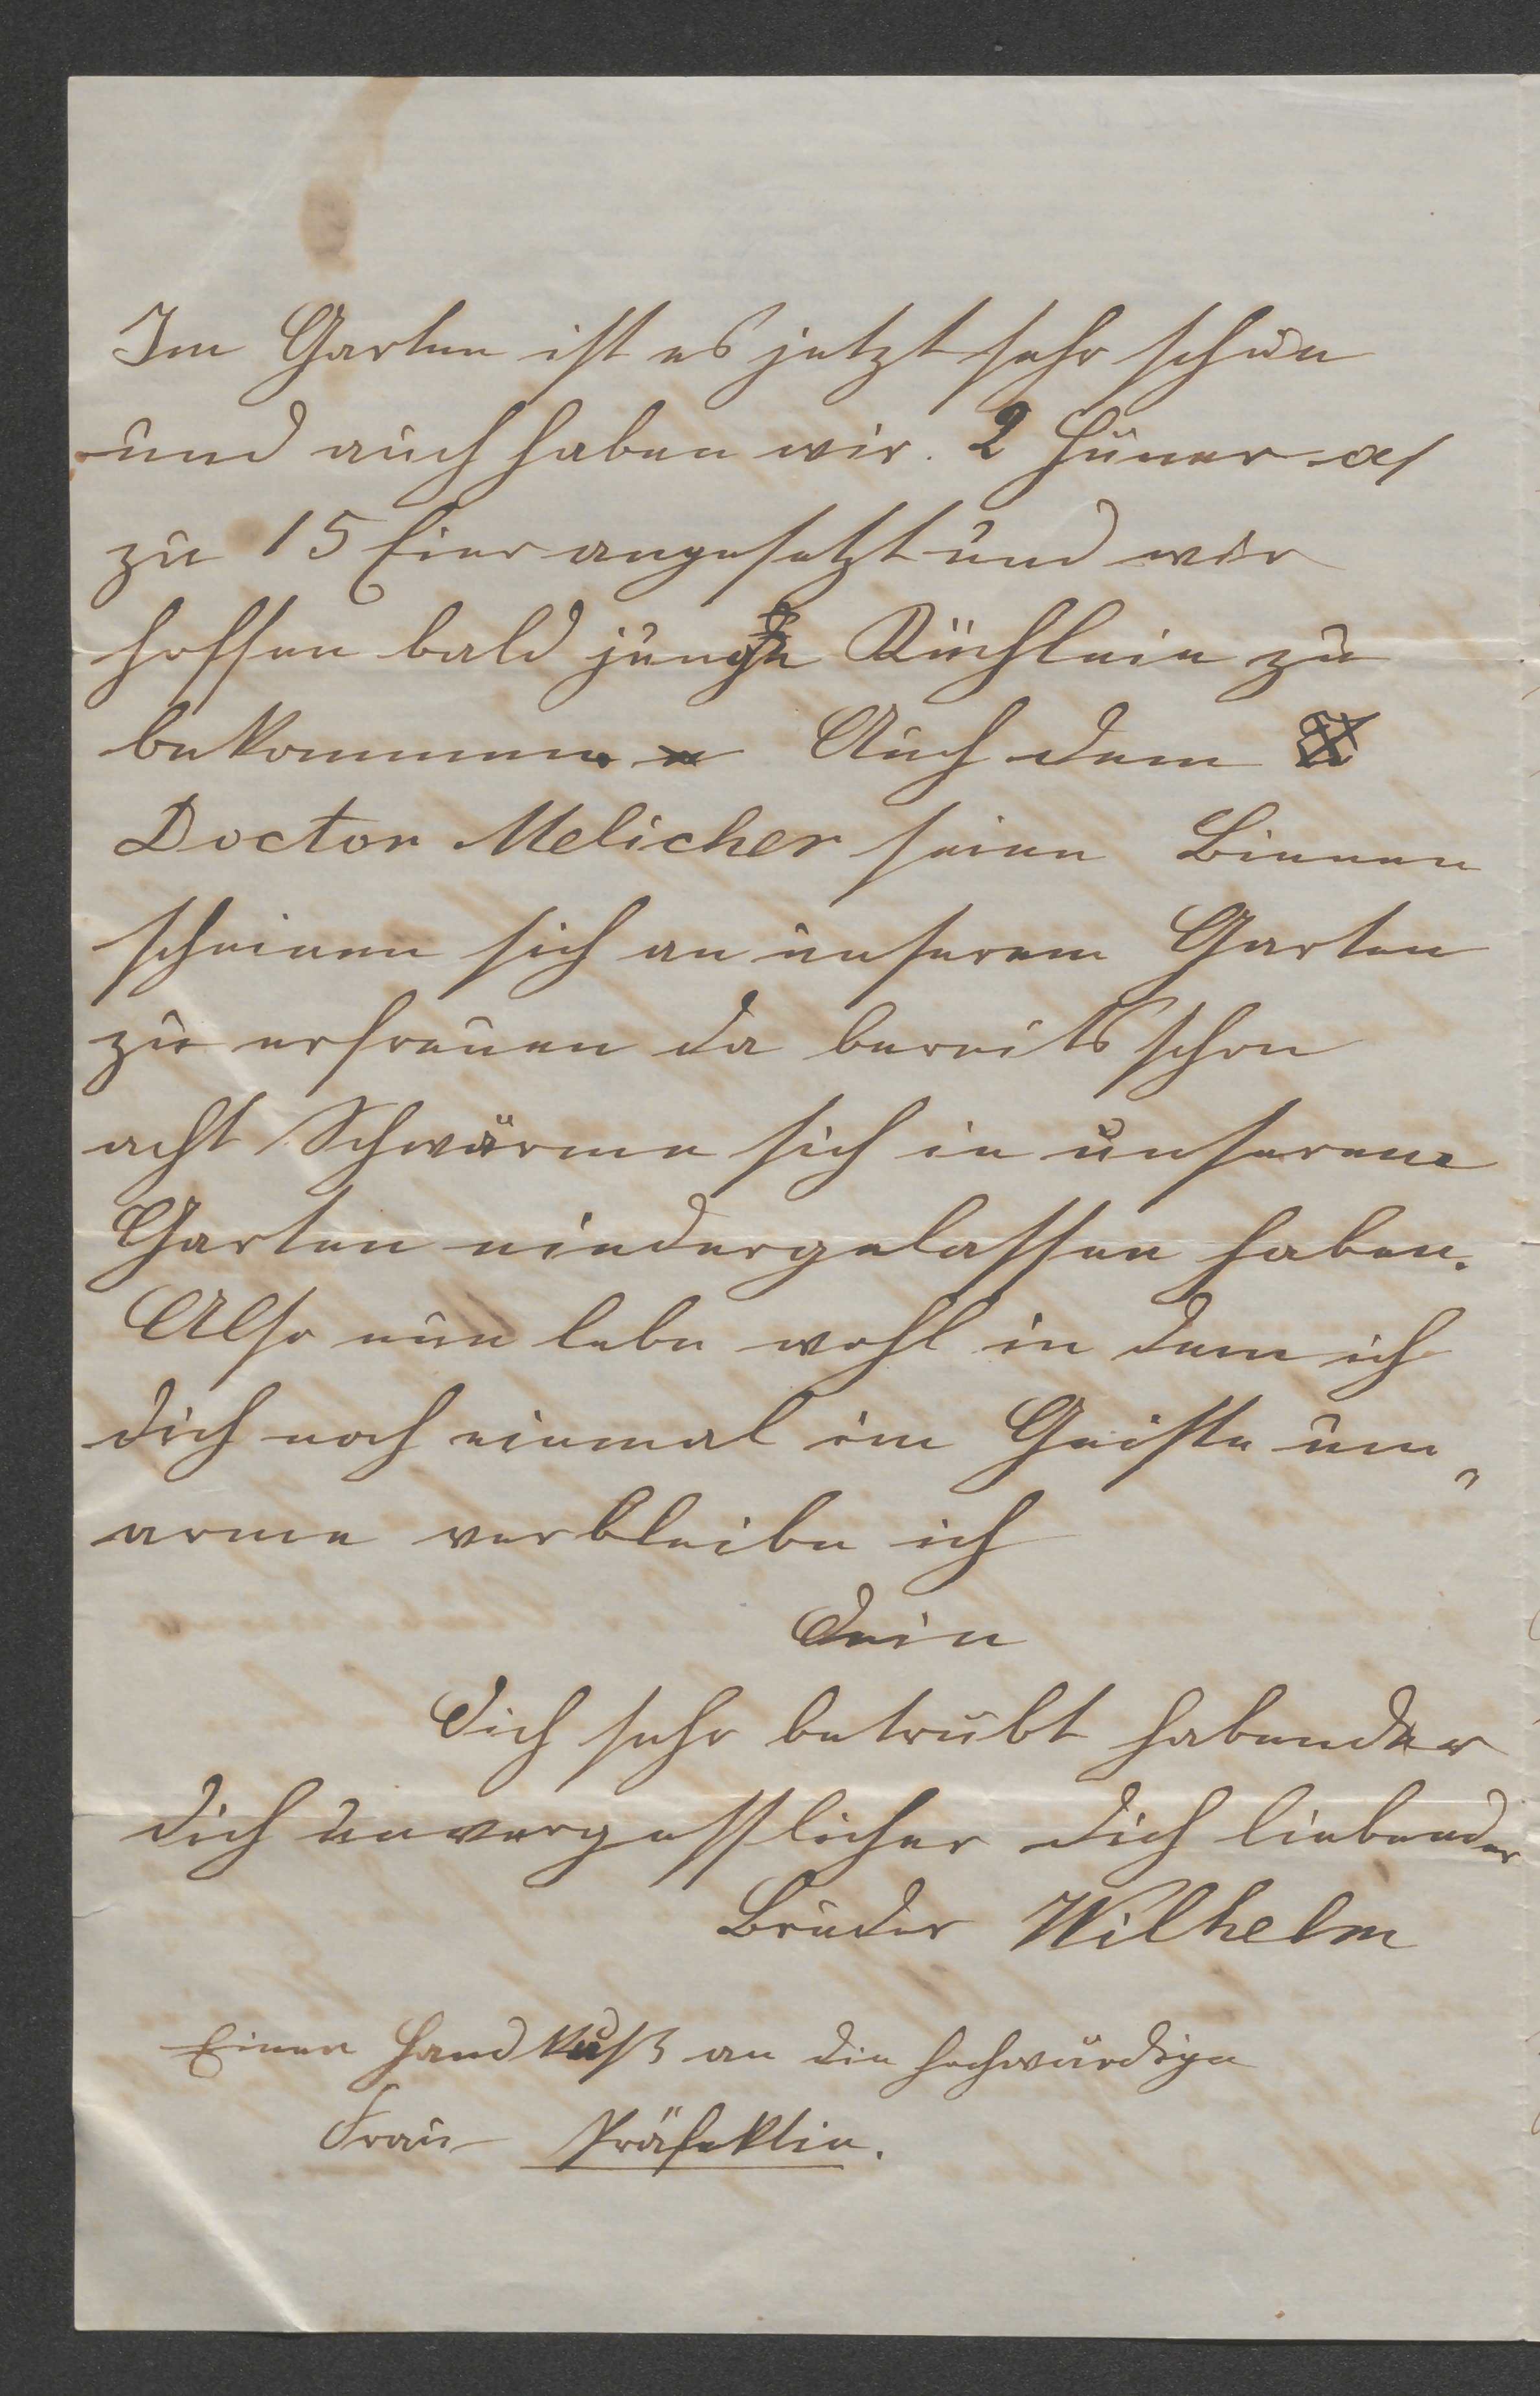 Im Garten ist es jetzt sehr schön
und auch haben wir 2 Hüner a/
zu 15 Eier angesetzt und wir
hoffen bald junge Küchlein zu
bekommen. Auch dem
Doctor Melicher seinen Bienen
scheinen sich an unserem Garten
zu erfreuen da bereits schon
acht Schwärme sich in unserem
Garten niedergelassen haben.
Also nun lebe wohl in dem ich
dich noch einmal im Geiste um„
arme verbleibe ich
Dein
Dich sehr betrübt habender
dich unvergesslicher dich liebender
Bruder Wilhelm
Einen Handkuß an die hochwürdige
Frau Präfektin.